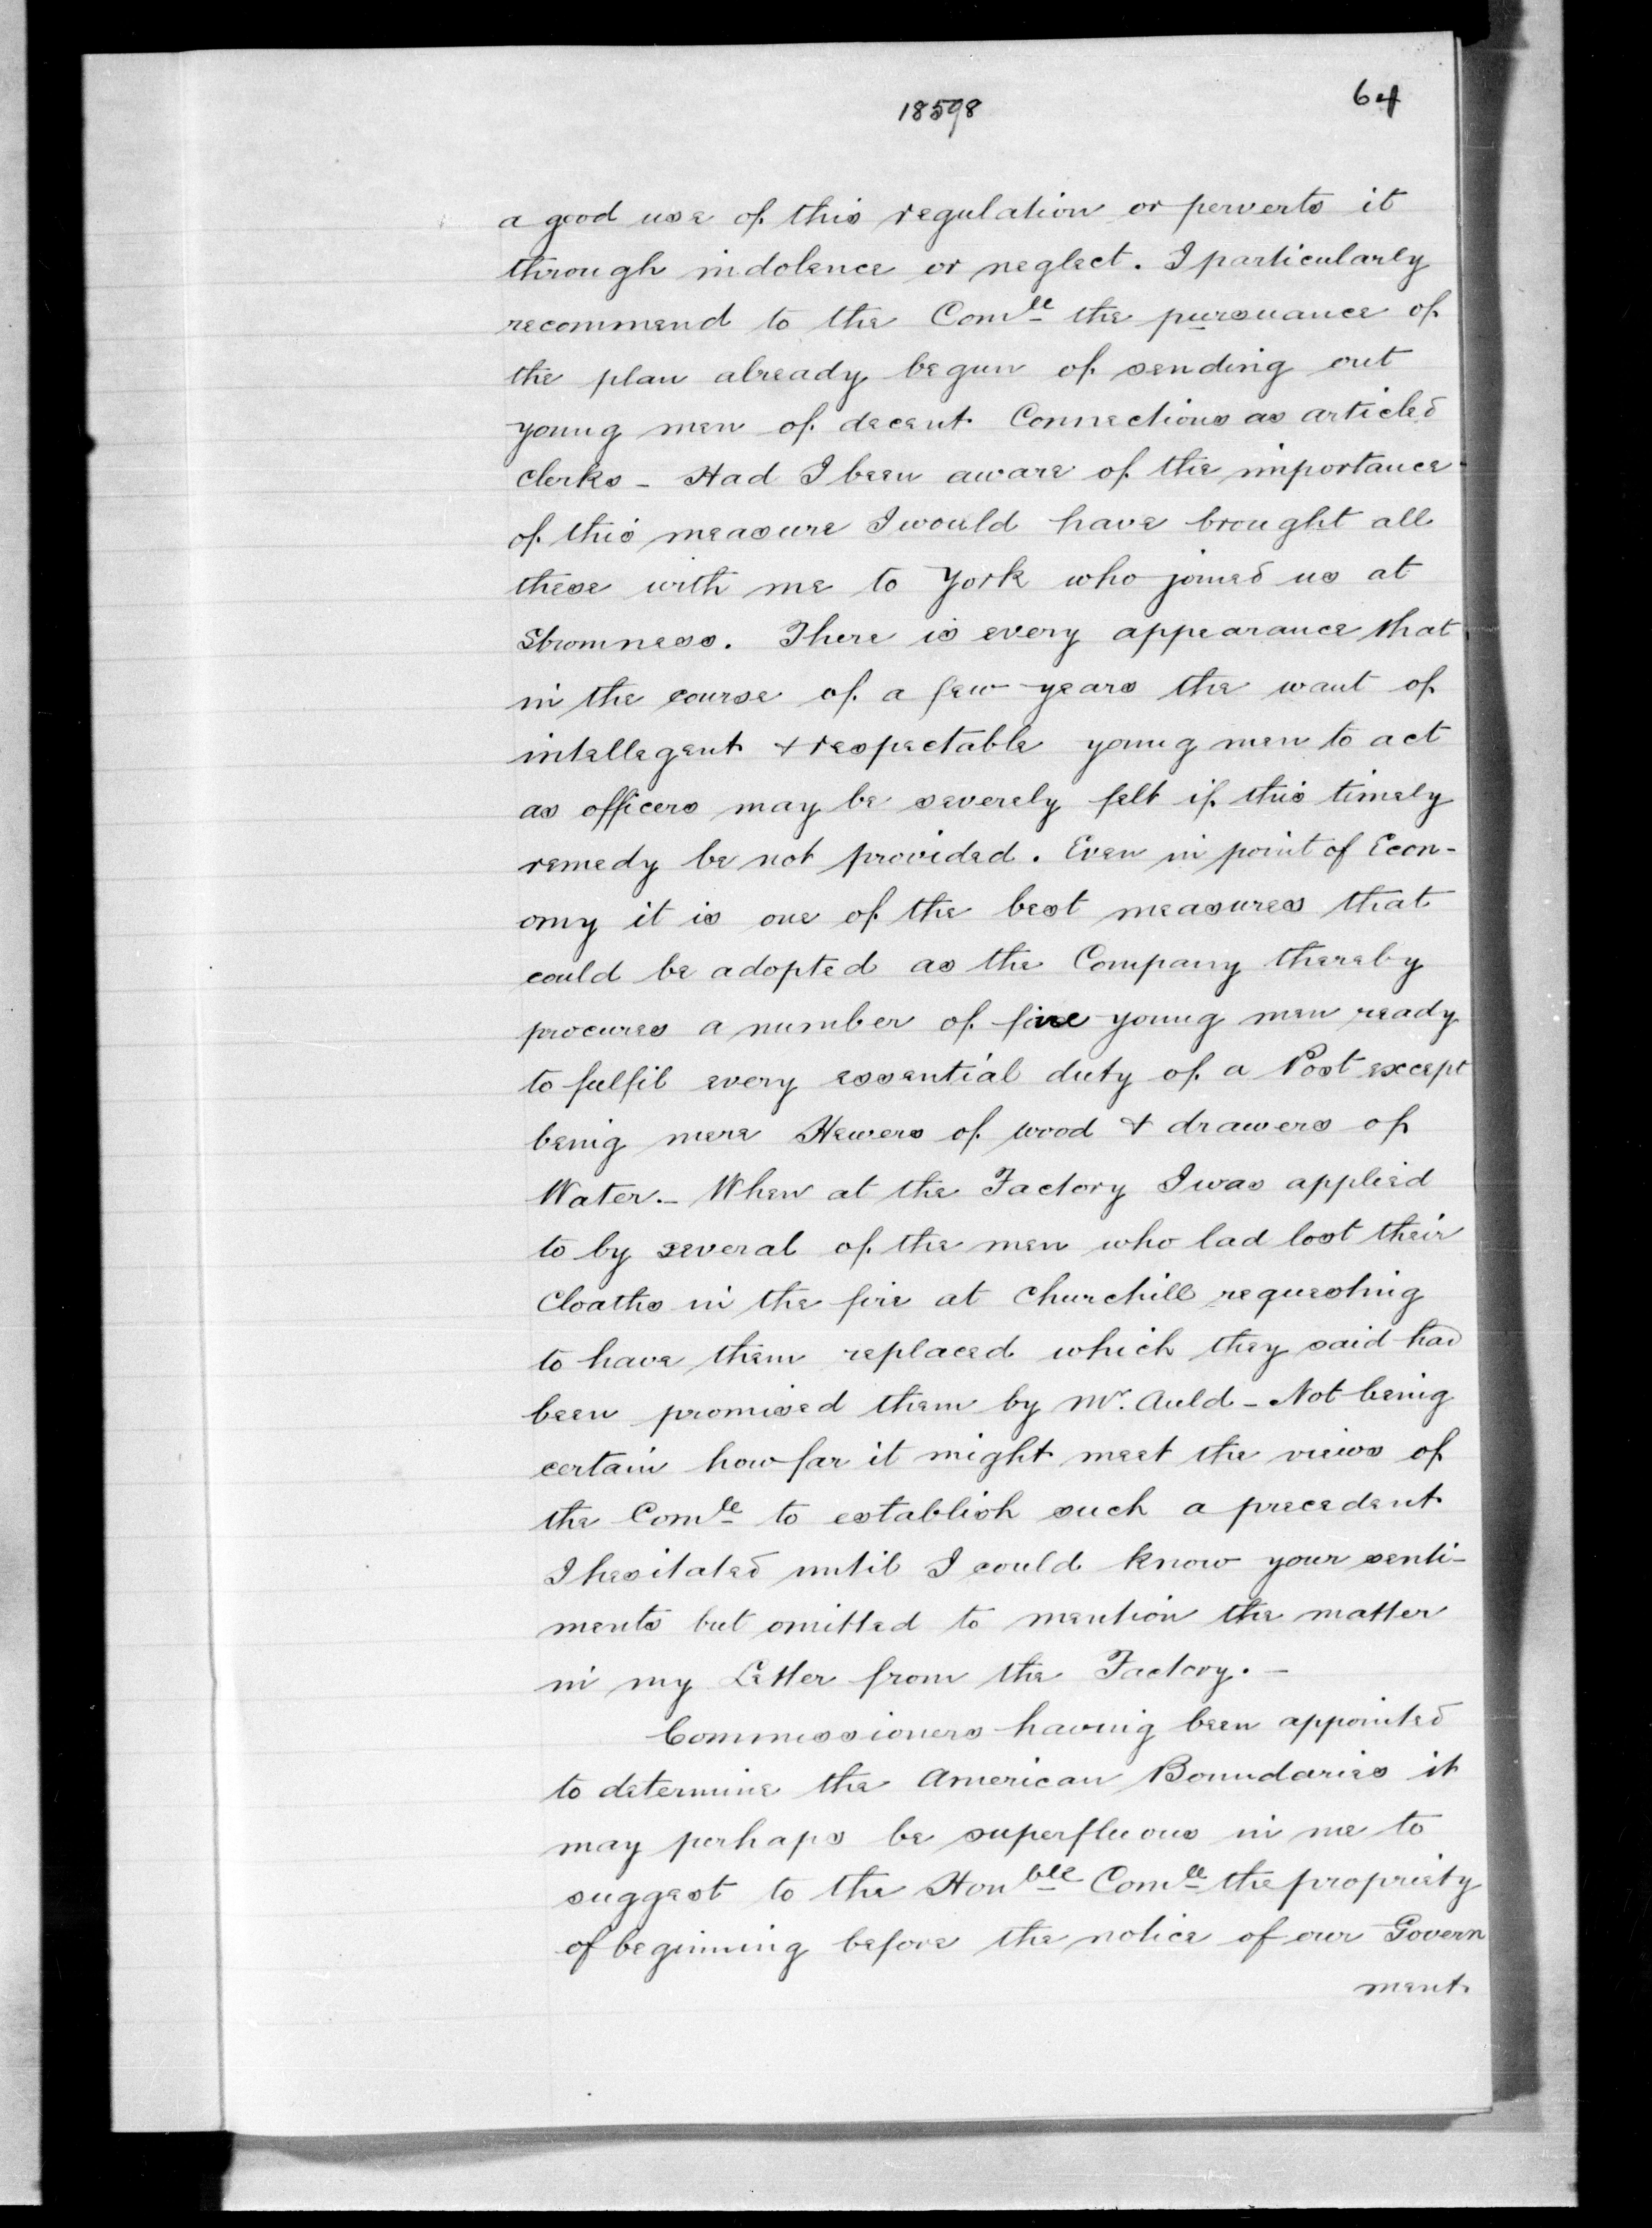 18598
64
a good use of this regulation or perverts it
through indolence or neglect. I particularly
recommend to the Com^ee the pursuance of
the plan already begun of sending out
young men of decent Connections as articled
Clerks - Had I been aware of the importance
of this measure I would have brought all
these with me to York who joined us at
Stromness. There is every appearance that
in the course of a few years the want of
intellegent & respectable young men to act
as officers may be severely felt if this timely
remedy be not provided. Even in point of Econ-
omy it is one of the best measures that
could be adopted as the Company thereby
procures a number of fine young men ready
to fulfil every essential duty of a Post except
being mere Hewers of wood & drawers of
Water. - When at the Factory I was applied
to by several of the men who lad lost their
Cloaths in the fire at Churchill requesting
to have them replaced which they said had
been promised them by Mr. Auld - Not being
certain how far it might meet the views of
the Com^ee to establish such a precedent
I hesitated until I could know your senti-
ments but omitted to mention the matter
in my Letter from the Factory. -
Commissioners having been appointed
to determine the American Boundaries it
may perhaps be superfluous in me to
suggest to the Hon^ble Com^ee the propriety
of beginning before the notice of our Govern
ment